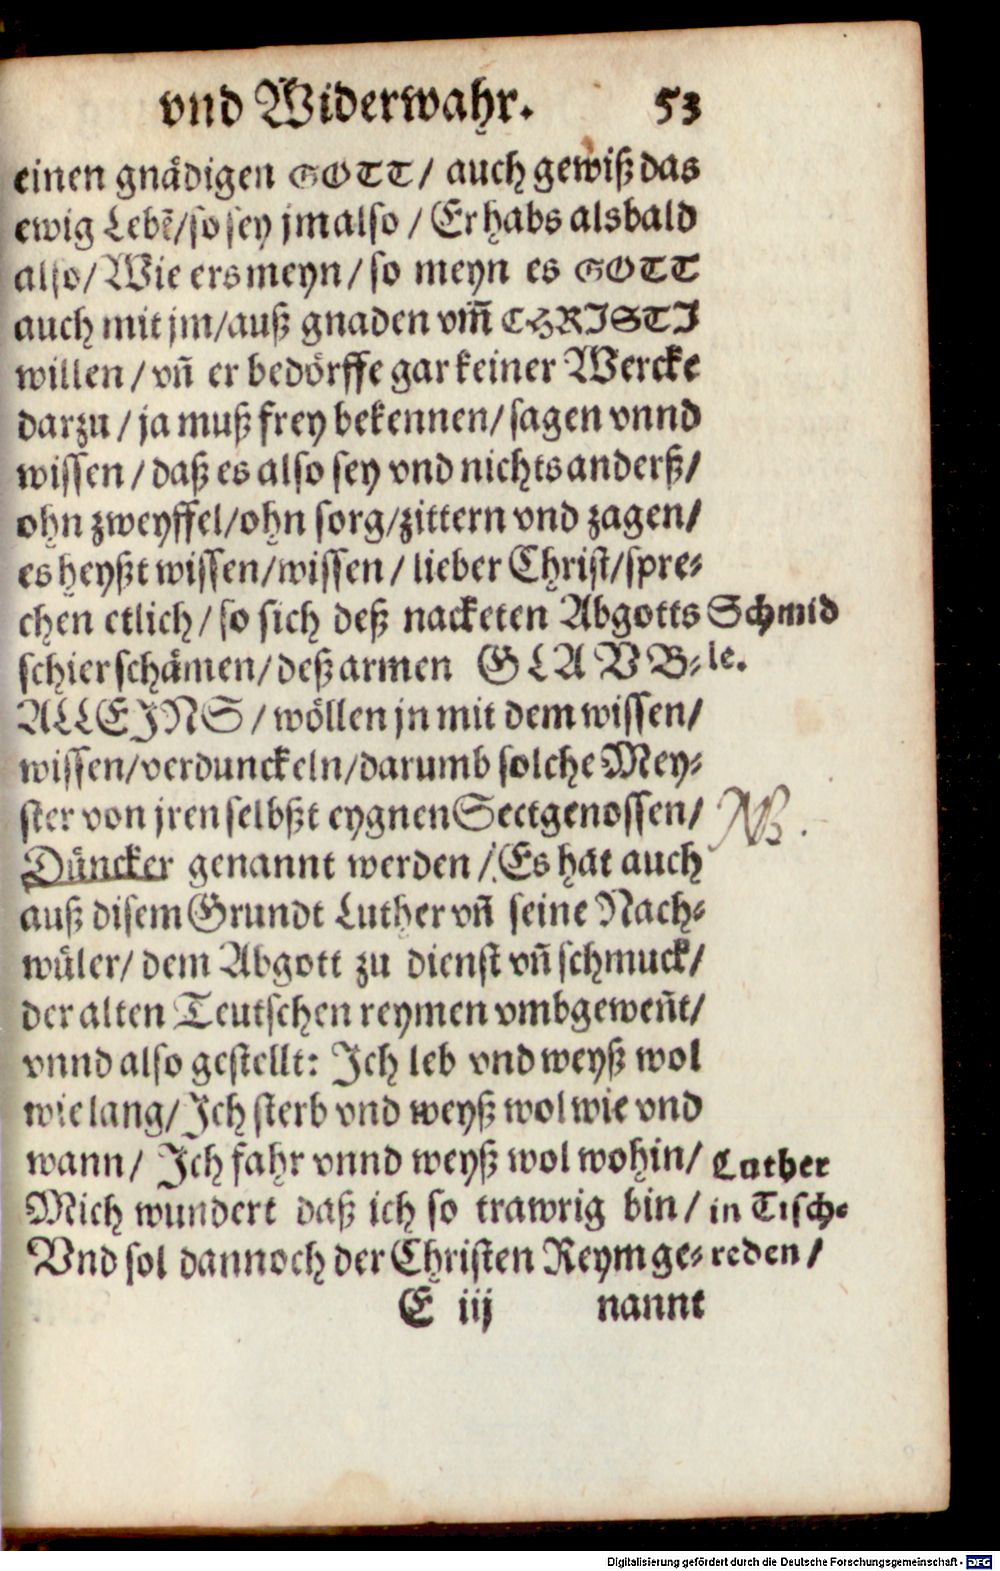 vnd Widerwahr. 53
einen gnådigen GOTT / auch gewiß das
ewig Lebẽ/so sey jm also / Er habs alsbald
also/ Wie ers meyn/ so meyn es GOTT
auch mit jm/auß gnaden vm̃ CHRISTI
willen / vñ er bedörffe gar keiner Wercke
darzu / ja muß frey bekennen/ sagen vnnd
wissen / daß es also sey vnd nichts anderß/
ohn zweyffel/ohn sorg/zittern vnd zagen/
es heyßt wissen/wissen / lieber Christ/spre-
chen etlich / so sich deß nacketen Abgotts Schmid
schier schåmen/ deß armen GLAVB- le.
ALLEINS / wöllen jn mit dem wissen/
wissen/verdunckeln/darumb solche Mey-
ster von jren selbßt eygnen Sectgenossen/ NB.
Důncker genannt werden / Es hat auch
auß disem Grundt Luther vñ seine Nach-
wůler/ dem Abgott zu dienst vñ schmuck/
der alten Teutschen reymen vmbgeweñt/
vnnd also gestellt: Ich leb vnd weyß wol
wie lang/ Ich sterb vnd weyß wol wie vnd
wann/ Ich fahr vnnd weyß wol wohin/ Luther
Mich wundert daß ich so trawrig bin / in Tisch-
Vnd sol dannoch der Christen Reym ge- reden /
E iij nannt
Digitalisierung gefördert durch die Deutsche Forschungsgemeinschaft - DFG